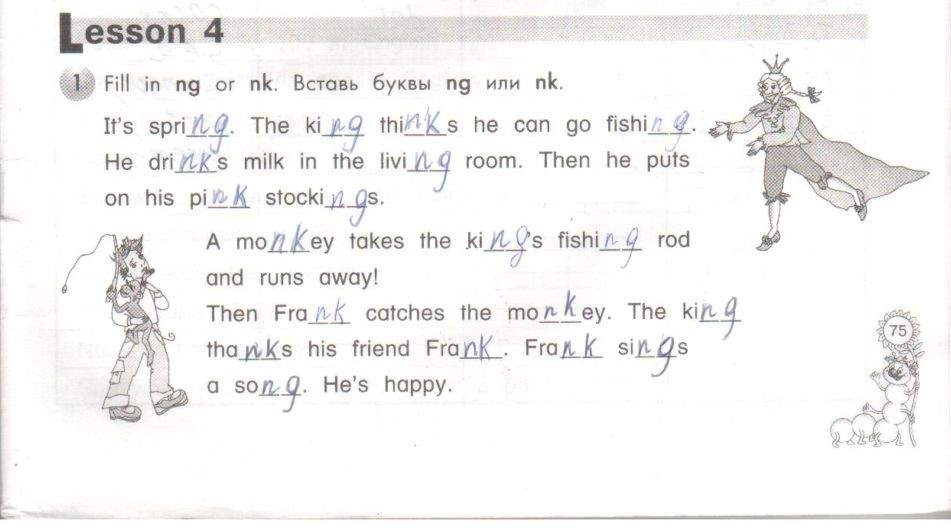 Lesson 4
1 Fill in ng or nk. Вставь буквы ng или nk.
It's spring. The king thinks he can go fishing.
He drinks milk in the living room. Then he puts
on his pink stockings.
A monkey takes the king's fishing rod
and runs away!
Then Frank catches the monkey. The king
thanks his friend Frank. Frank sings
a song. He's happy.
75